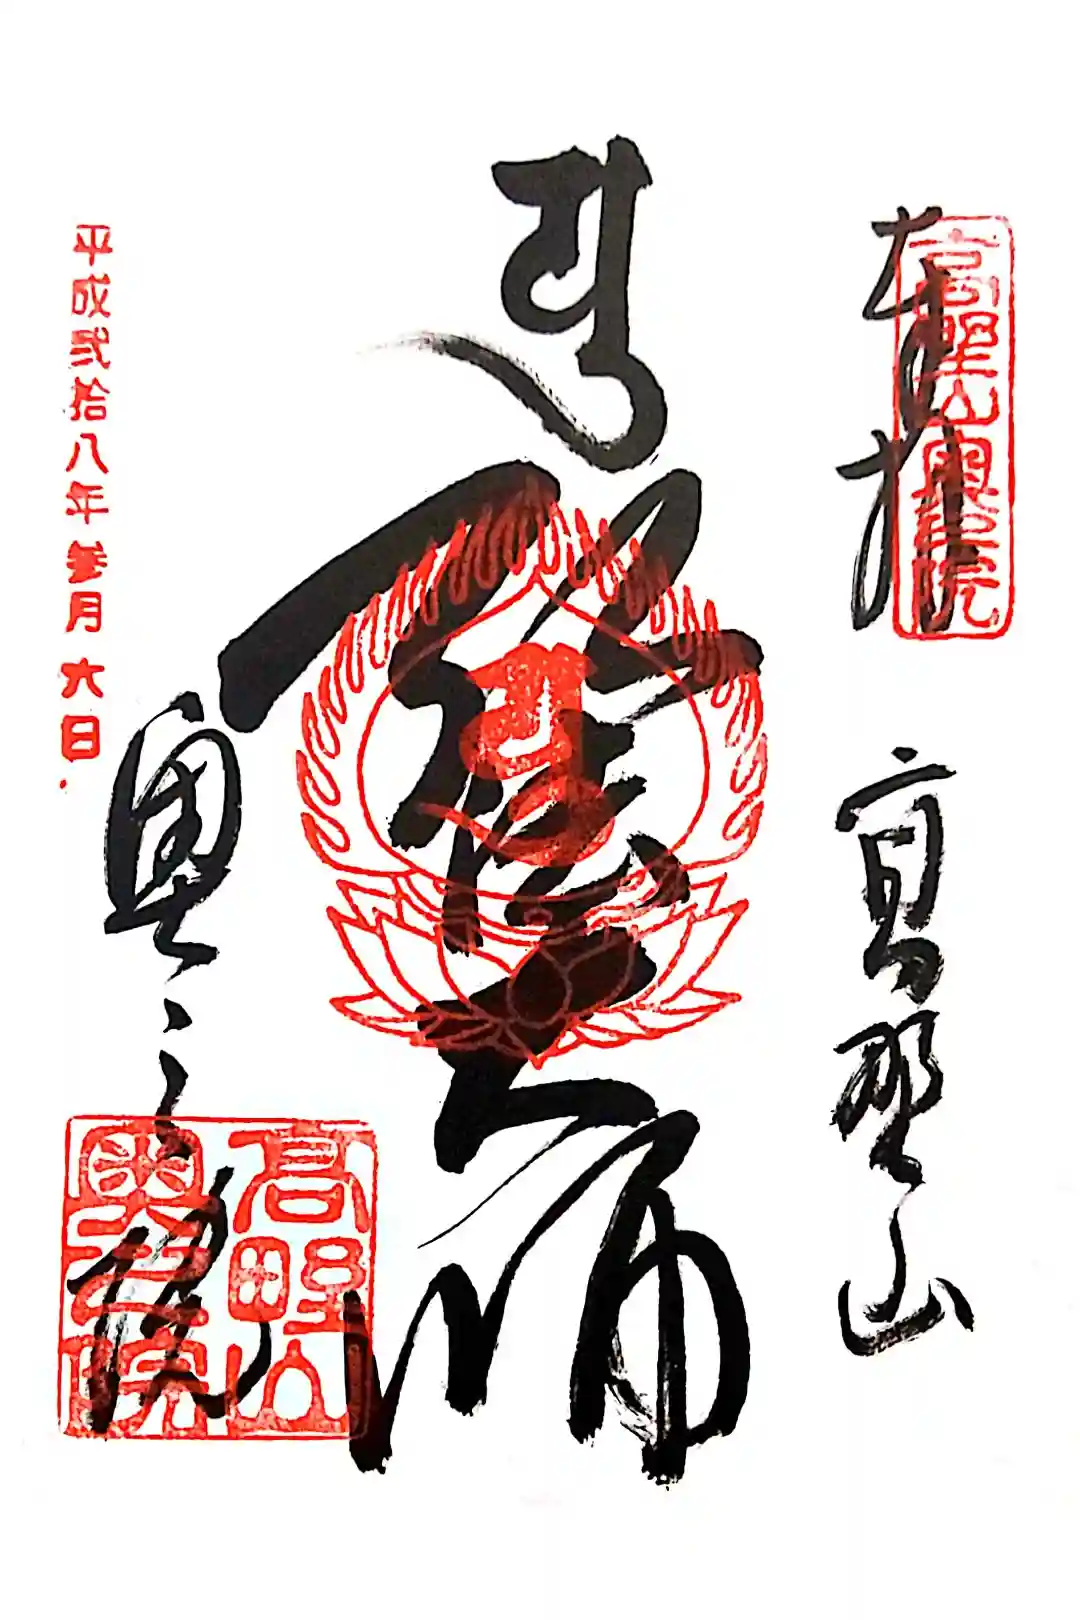 奉拝
高野山奥之院
高野山
𑖧𑖲
弘法大師
奥之院
高野山
奥之院
平成弐拾八年参月六日